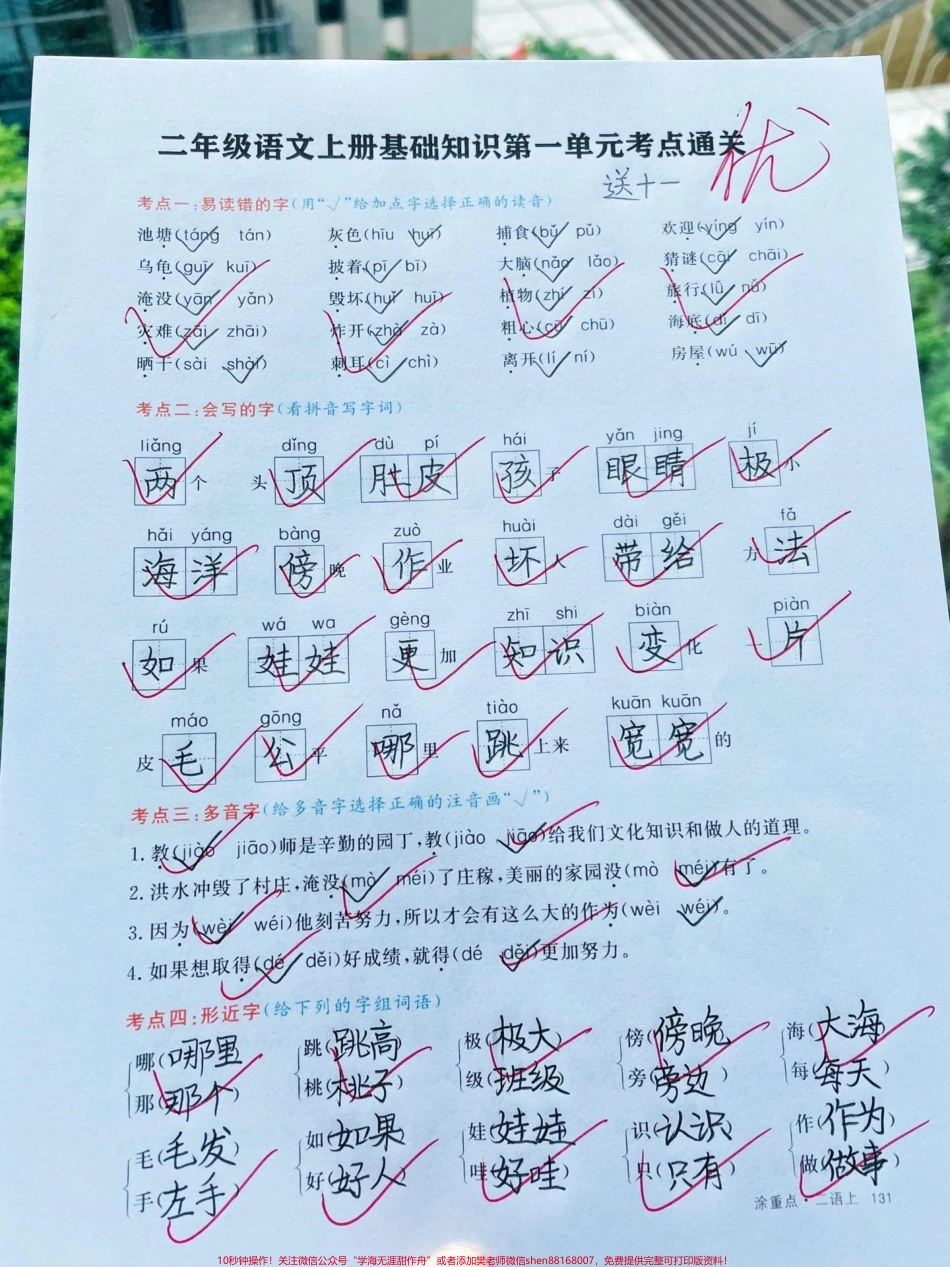 二年级语文上册基础知识第一单元考点通关 优
送十一
考点一:易读错的字(用“√”给加点字选择正确的读音)
池塘(táng√ tán) 灰色(hīu huī√) 捕食(bǔ√ pǔ) 欢迎(yíng√ yín)
乌龟(guī√ kuī) 披着(pī√ bī) 大脑(nǎo√ lǎo) 猜谜(cāi√ chāi)
淹没(yān√ yǎn) 毁坏(huǐ√ huī) 植物(zhí√ zí) 旅行(lǚ√ nǚ)
灾难(zāi√ zhāi) 炸开(zhà√ zà) 粗心(cū√ chū) 海底(dǐ√ dī)
晒干(sài shài√) 刺耳(cì√ chì) 离开(lí√ ní) 房屋(wú wū√)
考点二:会写的字(看拼音写字词)
liǎng dǐng dù pí hái yǎn jing jí
两个 头顶 肚皮 孩子 眼睛 极小
hǎi yáng bàng zuò huài dài gěi fǎ
海洋 傍晚 作业 坏人 带给 方法
rú wá wa gèng zhī shi biàn piàn
如果 娃娃 更加 知识 变化 一片
máo gōng nǎ tiào kuān kuān
皮毛 公平 哪里 跳上来 宽宽的
考点三:多音字(给多音字选择正确的注音画“√”)
1. 教(jiào√ jiāo)师是辛勤的园丁,教(jiào jiāo√)给我们文化知识和做人的道理。
2. 洪水冲毁了村庄,淹没(mò√ méi)了庄稼,美丽的家园没(mò méi√)有了。
3. 因为(wèi√ wéi)他刻苦努力,所以才会有这么大的作为(wèi wéi√)。
4. 如果想取得(dé√ děi)好成绩,就得(dé děi√)更加努力。
考点四:形近字(给下列的字组词语)
哪(哪里) 跳(跳高) 极(极大) 傍(傍晚) 海(大海)
那(那个) 桃(桃子) 级(班级) 旁(旁边) 每(每天)
毛(毛发) 如(如果) 娃(娃娃) 识(认识) 作(作为)
手(左手) 好(好人) 哇(好哇) 只(只有) 做(做事)
涂重点·二语上 131
10秒钟操作！关注微信公众号“学海无涯甜作舟”或者添加樊老师微信shen88168007，免费提供完整可打印版资料！